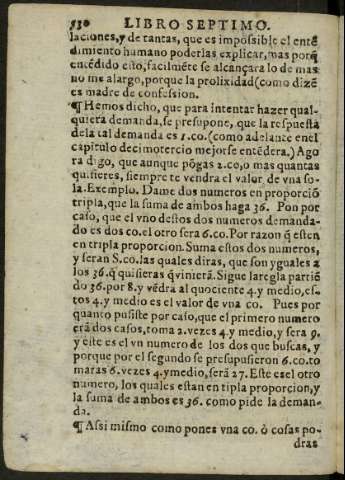 530 LIBRO SEPTIMO.
laciones, y de tantas, que es impossible el entẽ
dimiento humano poderlas explicar, mas porq̃
entẽdido esto, facilmẽte se alcançara lo de mas:
no me alargo, porque la prolixidad (como dizẽ
es madre de confession.
¶ Hemos dicho, que para intentar hazer qual-
quiera demanda, se presupone, que la respuesta
de la tal demanda es 1.co. (como adelante en el
capitulo decimotercio mejor se entẽdera.) Ago
ra digo, que aunque põgas 2.co, o mas quantas
quisieres, siempre te vendra el valor de vna so-
la. Exemplo. Dame dos numeros en proporciõ
tripla, que la suma de ambos haga 36. Pon por
caso, que el vno destos dos numeros demanda-
do es dos co. el otro sera 6.co. Por razon q̃ estẽ
en tripla proporcion. Suma estos dos numeros,
y seran 8.co. las quales diras, que son yguales a
los 36. q̃ quisieras q̃ viniera. Sigue la regla partiẽ
do 36. por 8. y vẽdra al quociente 4. y medio, es-
tos 4. y medio es el valor de vna co. Pues por
quanto pusiste por caso, que el primero numero
erã dos casos, toma 2. vezes 4. y medio, y sera 9.
y este es el vn numero de los dos que buscas, y
porque por el segundo se presupusieron 6.co. to
maras 6. vezes 4. y medio, serã 27. Este es el otro
numero, los quales estan en tipla proporcion, y
la suma de ambos es 36. como pide la deman-
da.
¶ Assi mismo como pones vna co. ò cosas po-
dras